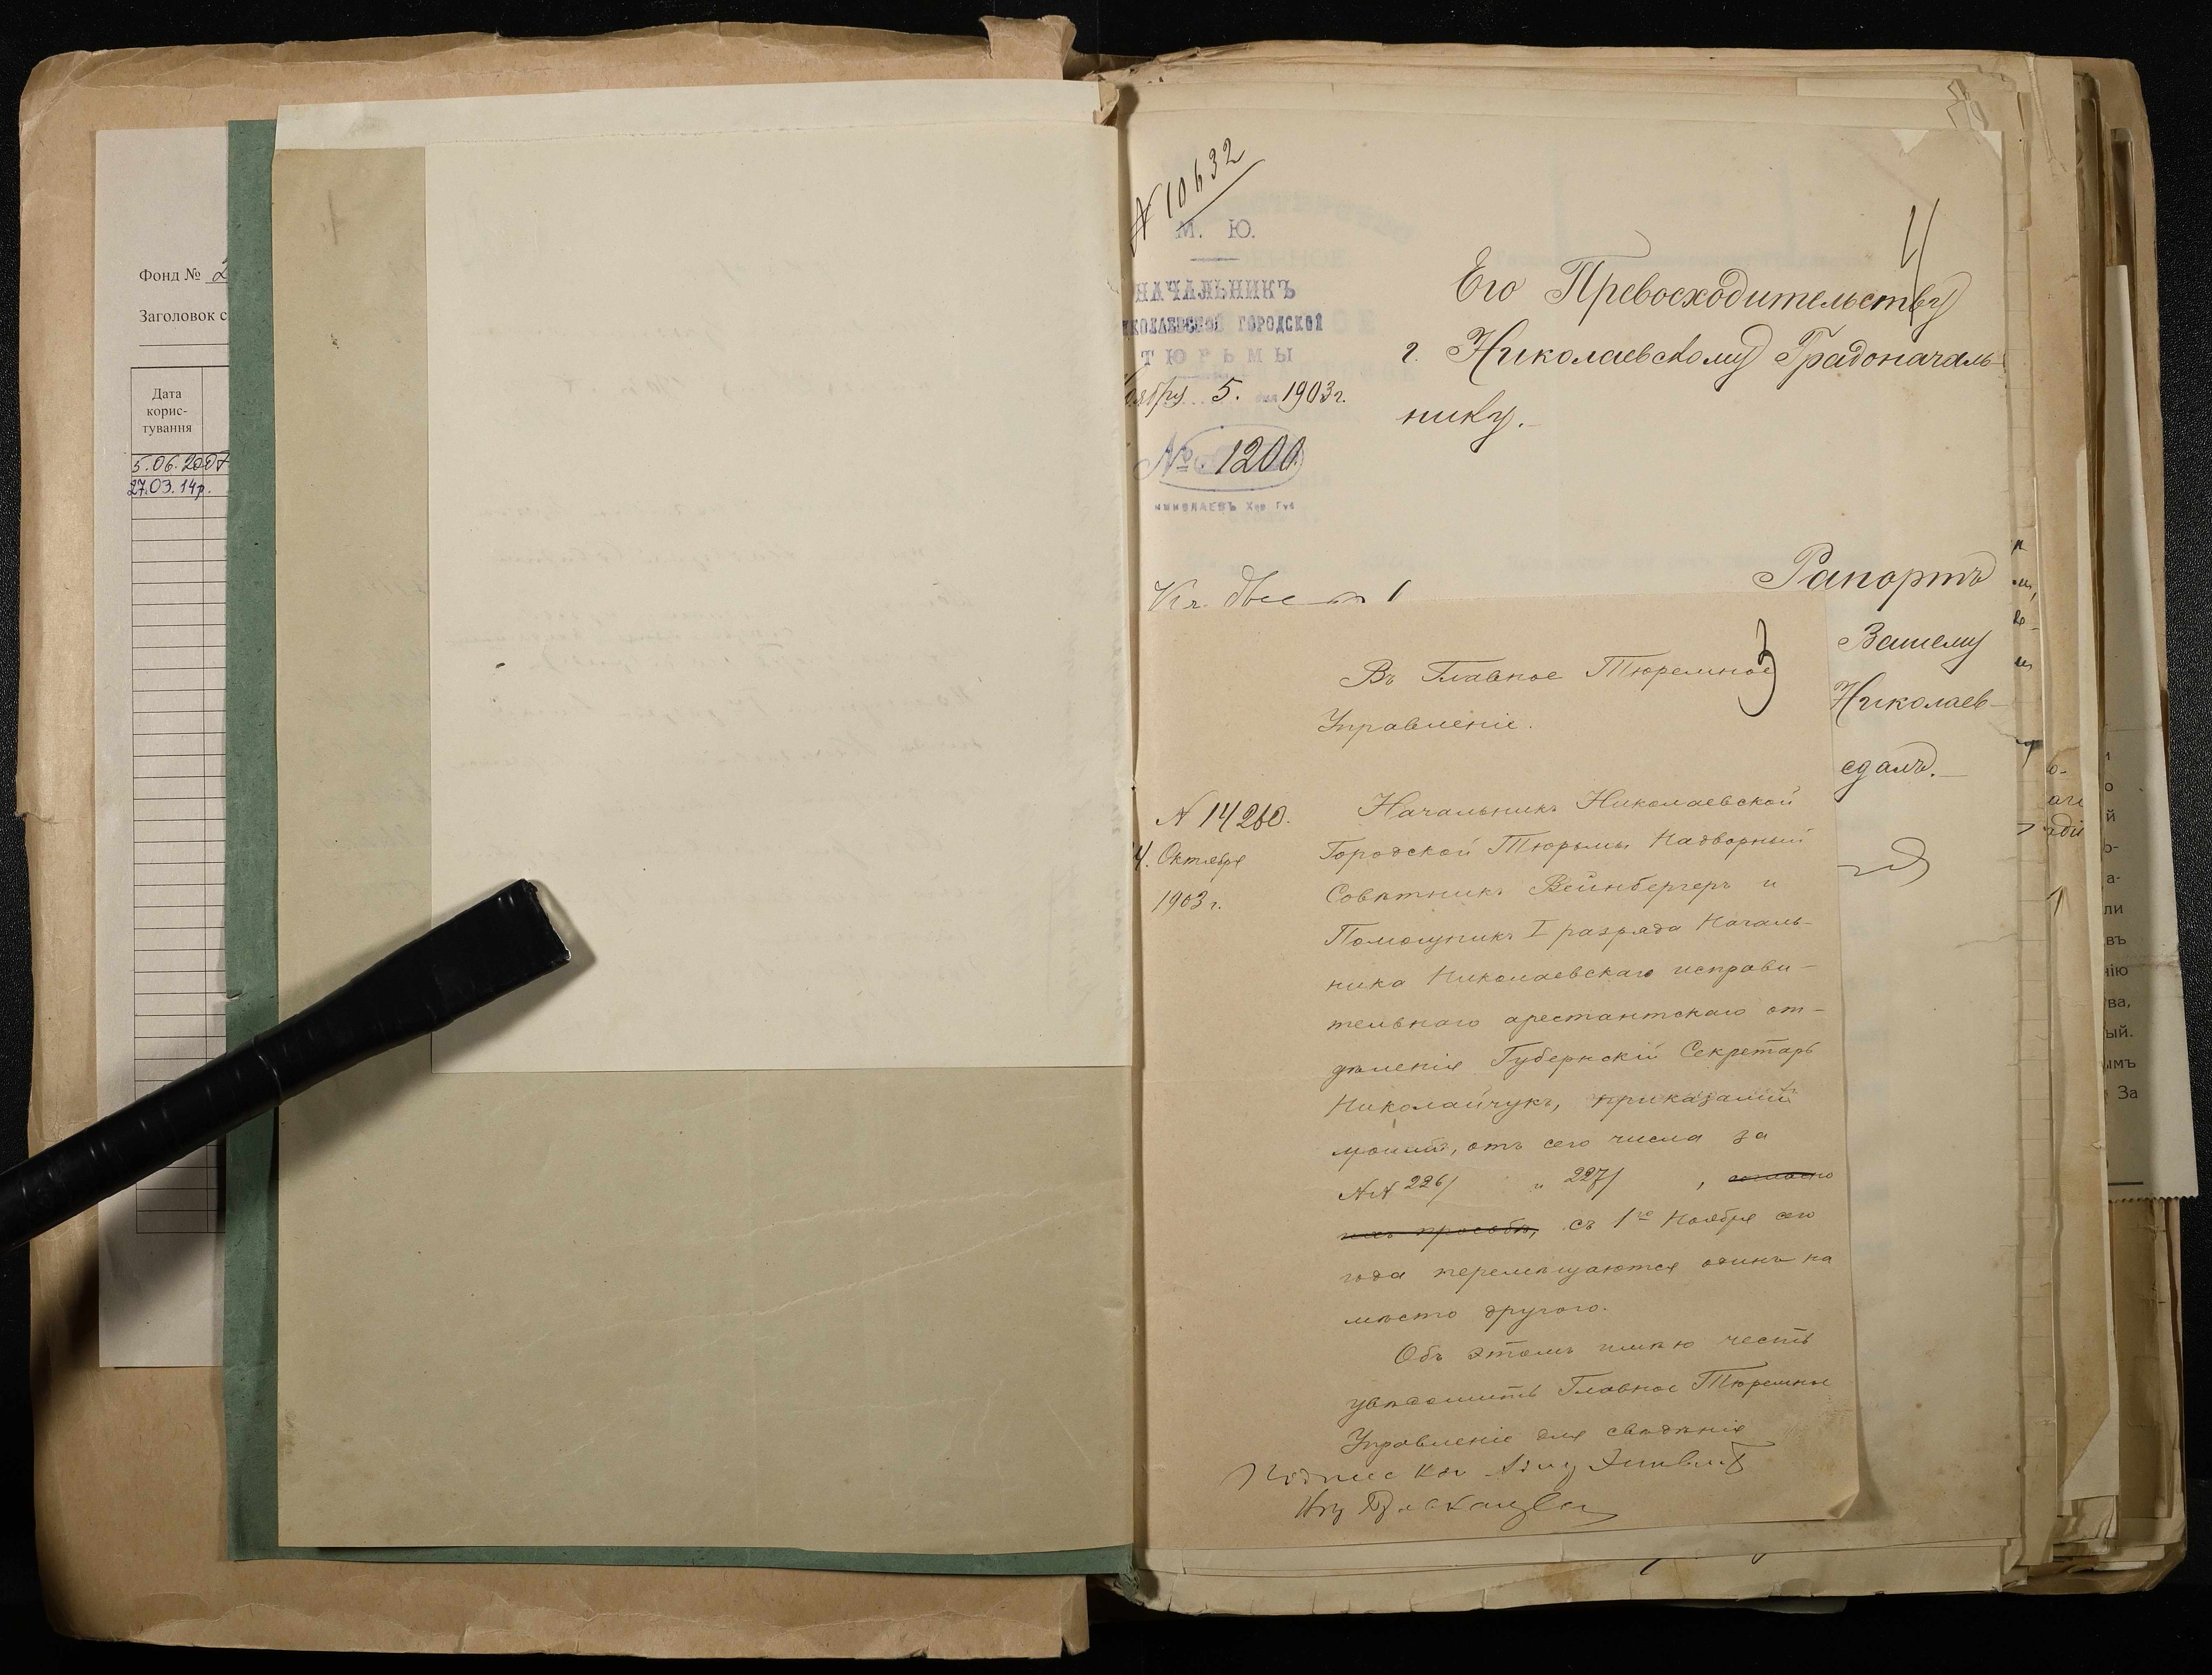 Фонд № 2
Заголовок с
Дата
корис-
тування
5.06.2007
27.03.14р.
№ 10632
М. Ю.
НАЧАЛЬНИКЪ
ИКОЛАЕВСКОЙ ГОРОДСКОЙ
ТЮРЬМЫ
оября 5. дня 1903 г.
№ 1200
НИКОЛАЕВЪ Хер Губ
4
Его Превосходительству
г. Николаевскому Градоначаль-
нику.
Рапортъ
Вашему
Николаев-
сдалъ.
3
Въ Главное Тюремное
Управленіе.
N 14260.
4. Октября
1903 г.
Начальникъ Николаевской
Городской Тюрьмы Надворный
Совѣтникъ Вейнбергеръ и
Помощникъ I разряда Началь-
ника Николаевскаго исправи-
тельнаго арестантскаго от-
дѣленія Губернскій Секретарь
Николайчукъ, приказами
моими, отъ сего числа за
NN 226/ и 227/ , согласно
ихъ просьбѣ, съ 1го Ноября сего
года перемѣщаются одинъ на
мѣсто другого.
Объ этомъ имѣю честь
увѣдомить Главное Тюремное
Управленіе для свѣдѣнія